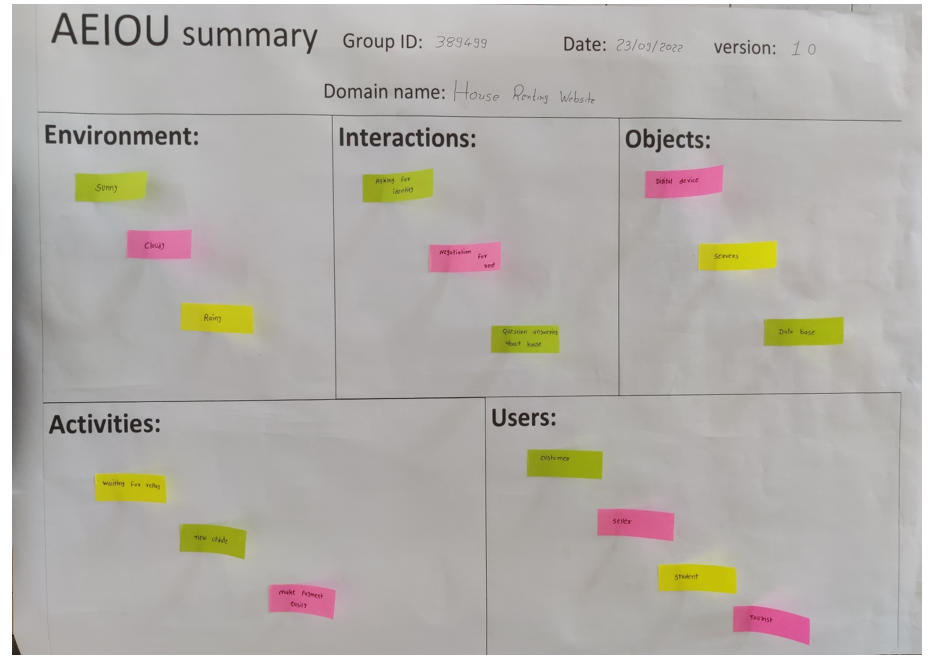 AEIOU summary Group ID: 389499 Date: 23/09/2022 version: 1 0
Domain name: House Renting Website
Environment:
Sunny
Cloudy
Rainy
Interactions:
Asking for
identity
Negotiation for
rent
Question answering
about house
Objects:
Digital device
Servers
Data base
Activities:
Waiting for
view
make Payment
easily
Users:
customer
Seller
Student
Tourist